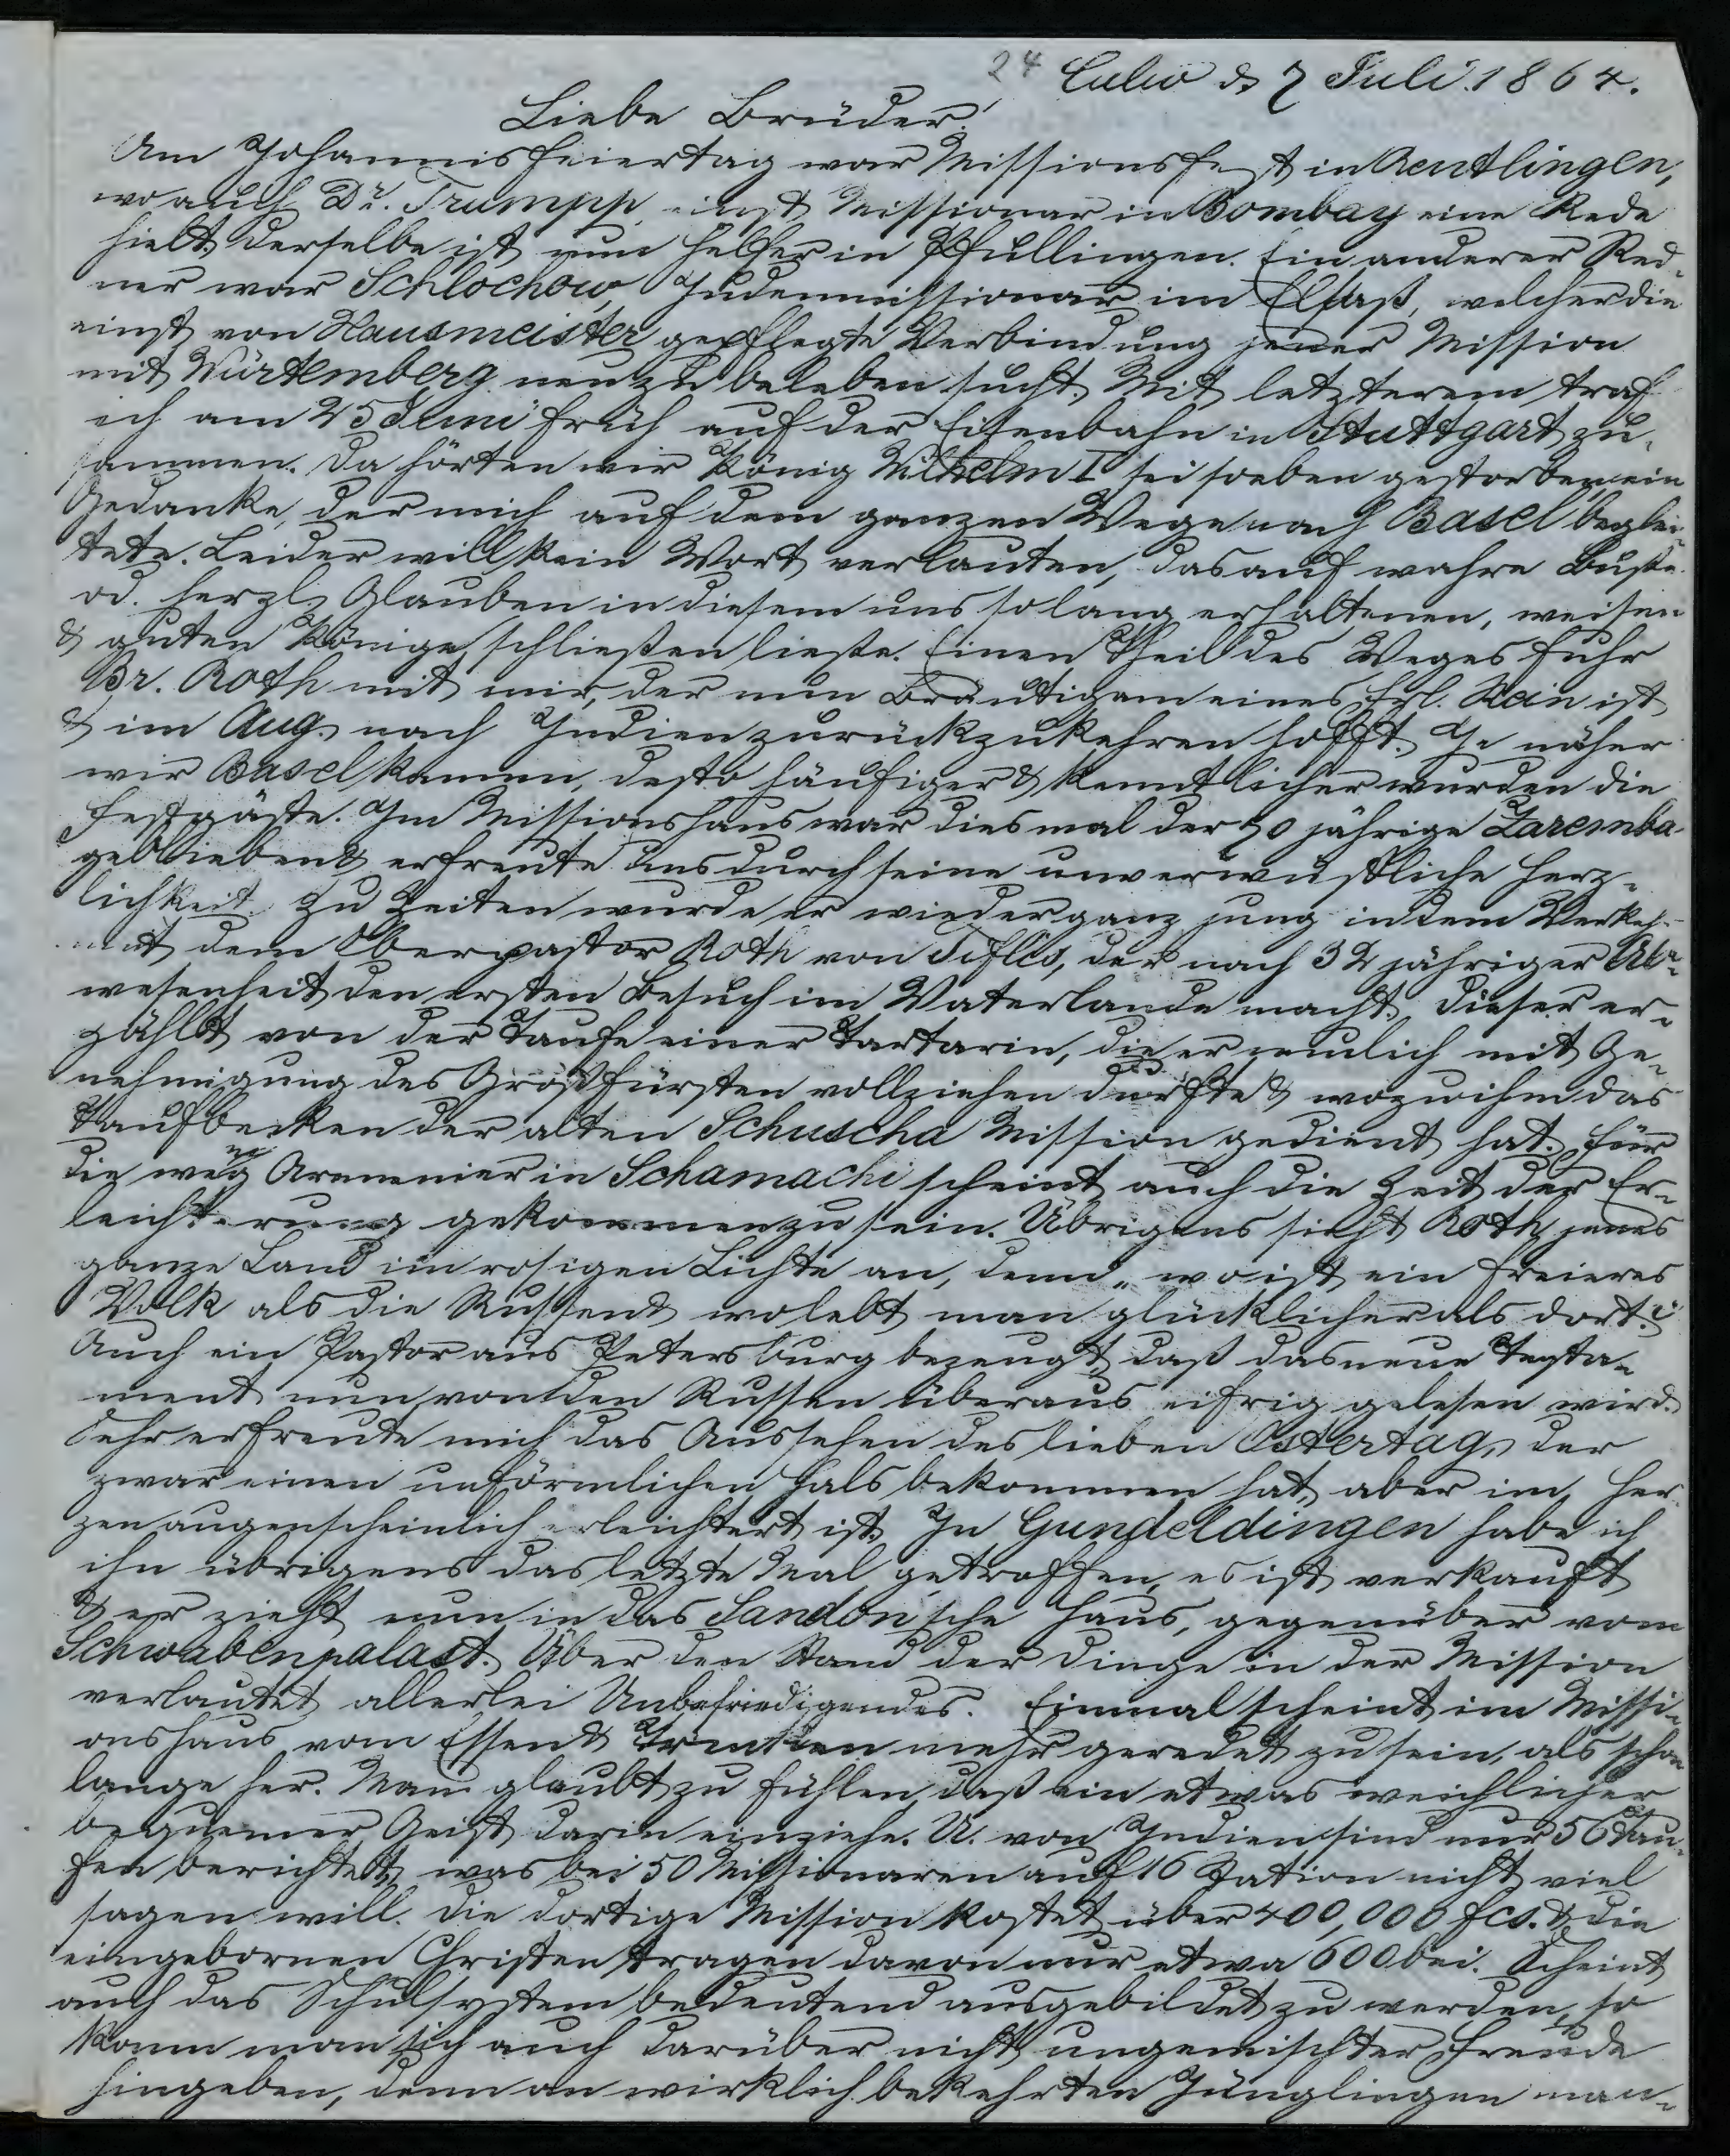 24 Calw d 7 Juli 1864.
Liebe Brüder!
Am Johannisfeiertag war Missionsfest in Reutlingen,
wo auch Dr. Trumpp, einst Missionar in Bombay eine Rede
hielt, derselbe ist nun Helfer in Pfullingen. Ein anderer Red-
ner war Schlochow, Judenmissionar im Elsaß, welcher die
einst von Hausmeister gepflegte Verbindung jener Mission
mit Würtemberg neu zu beleben sucht. Mit letzterem traf
ich am 25 Juni früh auf der Eisenbahn in Stuttgart zu-
sammen. Da hörten wir König Wilhelm I sei soeben gestorben, ein
Gedanke, der mich auf dem ganzen Wege nach Basel beglei-
tete. Leider will kein Wort verlauten, das auf wahre Buße
od. herzl. Glauben in diesem uns so lang erhaltenen, weisen
& guten Könige schließen ließe. Einen Theil des Weges fuhr
Br. Roth mit mir, der nun Bräutigam eines Frl. Stein ist
& im Aug. nach Indien zurückzukehren hofft. Je näher
wir Basel kamen, desto häufiger & kenntlicher wurden die
Festgäste. Im Missionshaus war diesmal der 70 jährige Zaremba
geblieben & erfreute uns durch seine unverwüstliche Herz-
lichkeit. Zu Zeiten wurde er wieder ganz jung in dem Verkehr
mit dem Oberpastor Roth von Tiflis, der nach 32 jähriger Ab-
wesenheit den ersten Besuch im Vaterlande macht. Dieser er-
zählt von der Taufe einer Tartarin, die er neulich mit Ge-
nehmigung des Großfürsten vollziehen durfte & wozu ihm das
Taufbecken der alten Schuscha Mission gedient hat. Für
die evang Armenier in Schamachi scheint auch die Zeit der Er-
leichterung gekommen zu sein. Übrigens sieht Roth jenes
ganze Land im rosigen Lichte an, denn „wo ist ein freieres
Volk als die Russen & wo lebt man glücklicher als dort?“
Auch ein Pastor aus Petersburg bezeugt, daß das neue Testa-
ment nun von den Russen überaus eifrig gelesen wird.
Sehr erfreute mich das Aussehen des lieben Ostertag, der
zwar einen unförmlichen Hals bekommen hat, aber im Her-
zen augenscheinlich erleichtert ist. In Gundeldingen habe ich
ihn übrigens das letzte Mal getroffen, es ist verkauft
& er zieht nun in das Sandoz'sche Haus, gegenüber vom
Schwabenpalast. Über den Stand der Dinge in der Mission
verlautet allerlei Unbefriedigendes. Einmal scheint im Missi-
onshaus vom Essen & Trinken mehr geredet zu sein, als schon
lange her. Man glaubt zu fühlen, daß ein etwas weichlicher
bequemer Geist darin einziehe. U. von Indien sind nur 56 Tau-
fen berichtet, was bei 50 Missionaren auf 16 Station nicht viel
sagen will. Die dortige Mission kostet über 400,000 fcs. & die
eingebornen Christen tragen davon nur etwa 600 bei. Scheint
auch das Schulsystem bedeutend ausgebildet zu werden, so
kann man sich auch darüber nicht ungemischter Freude
hingeben, denn an wirklich bekehrten Jünglingen man-